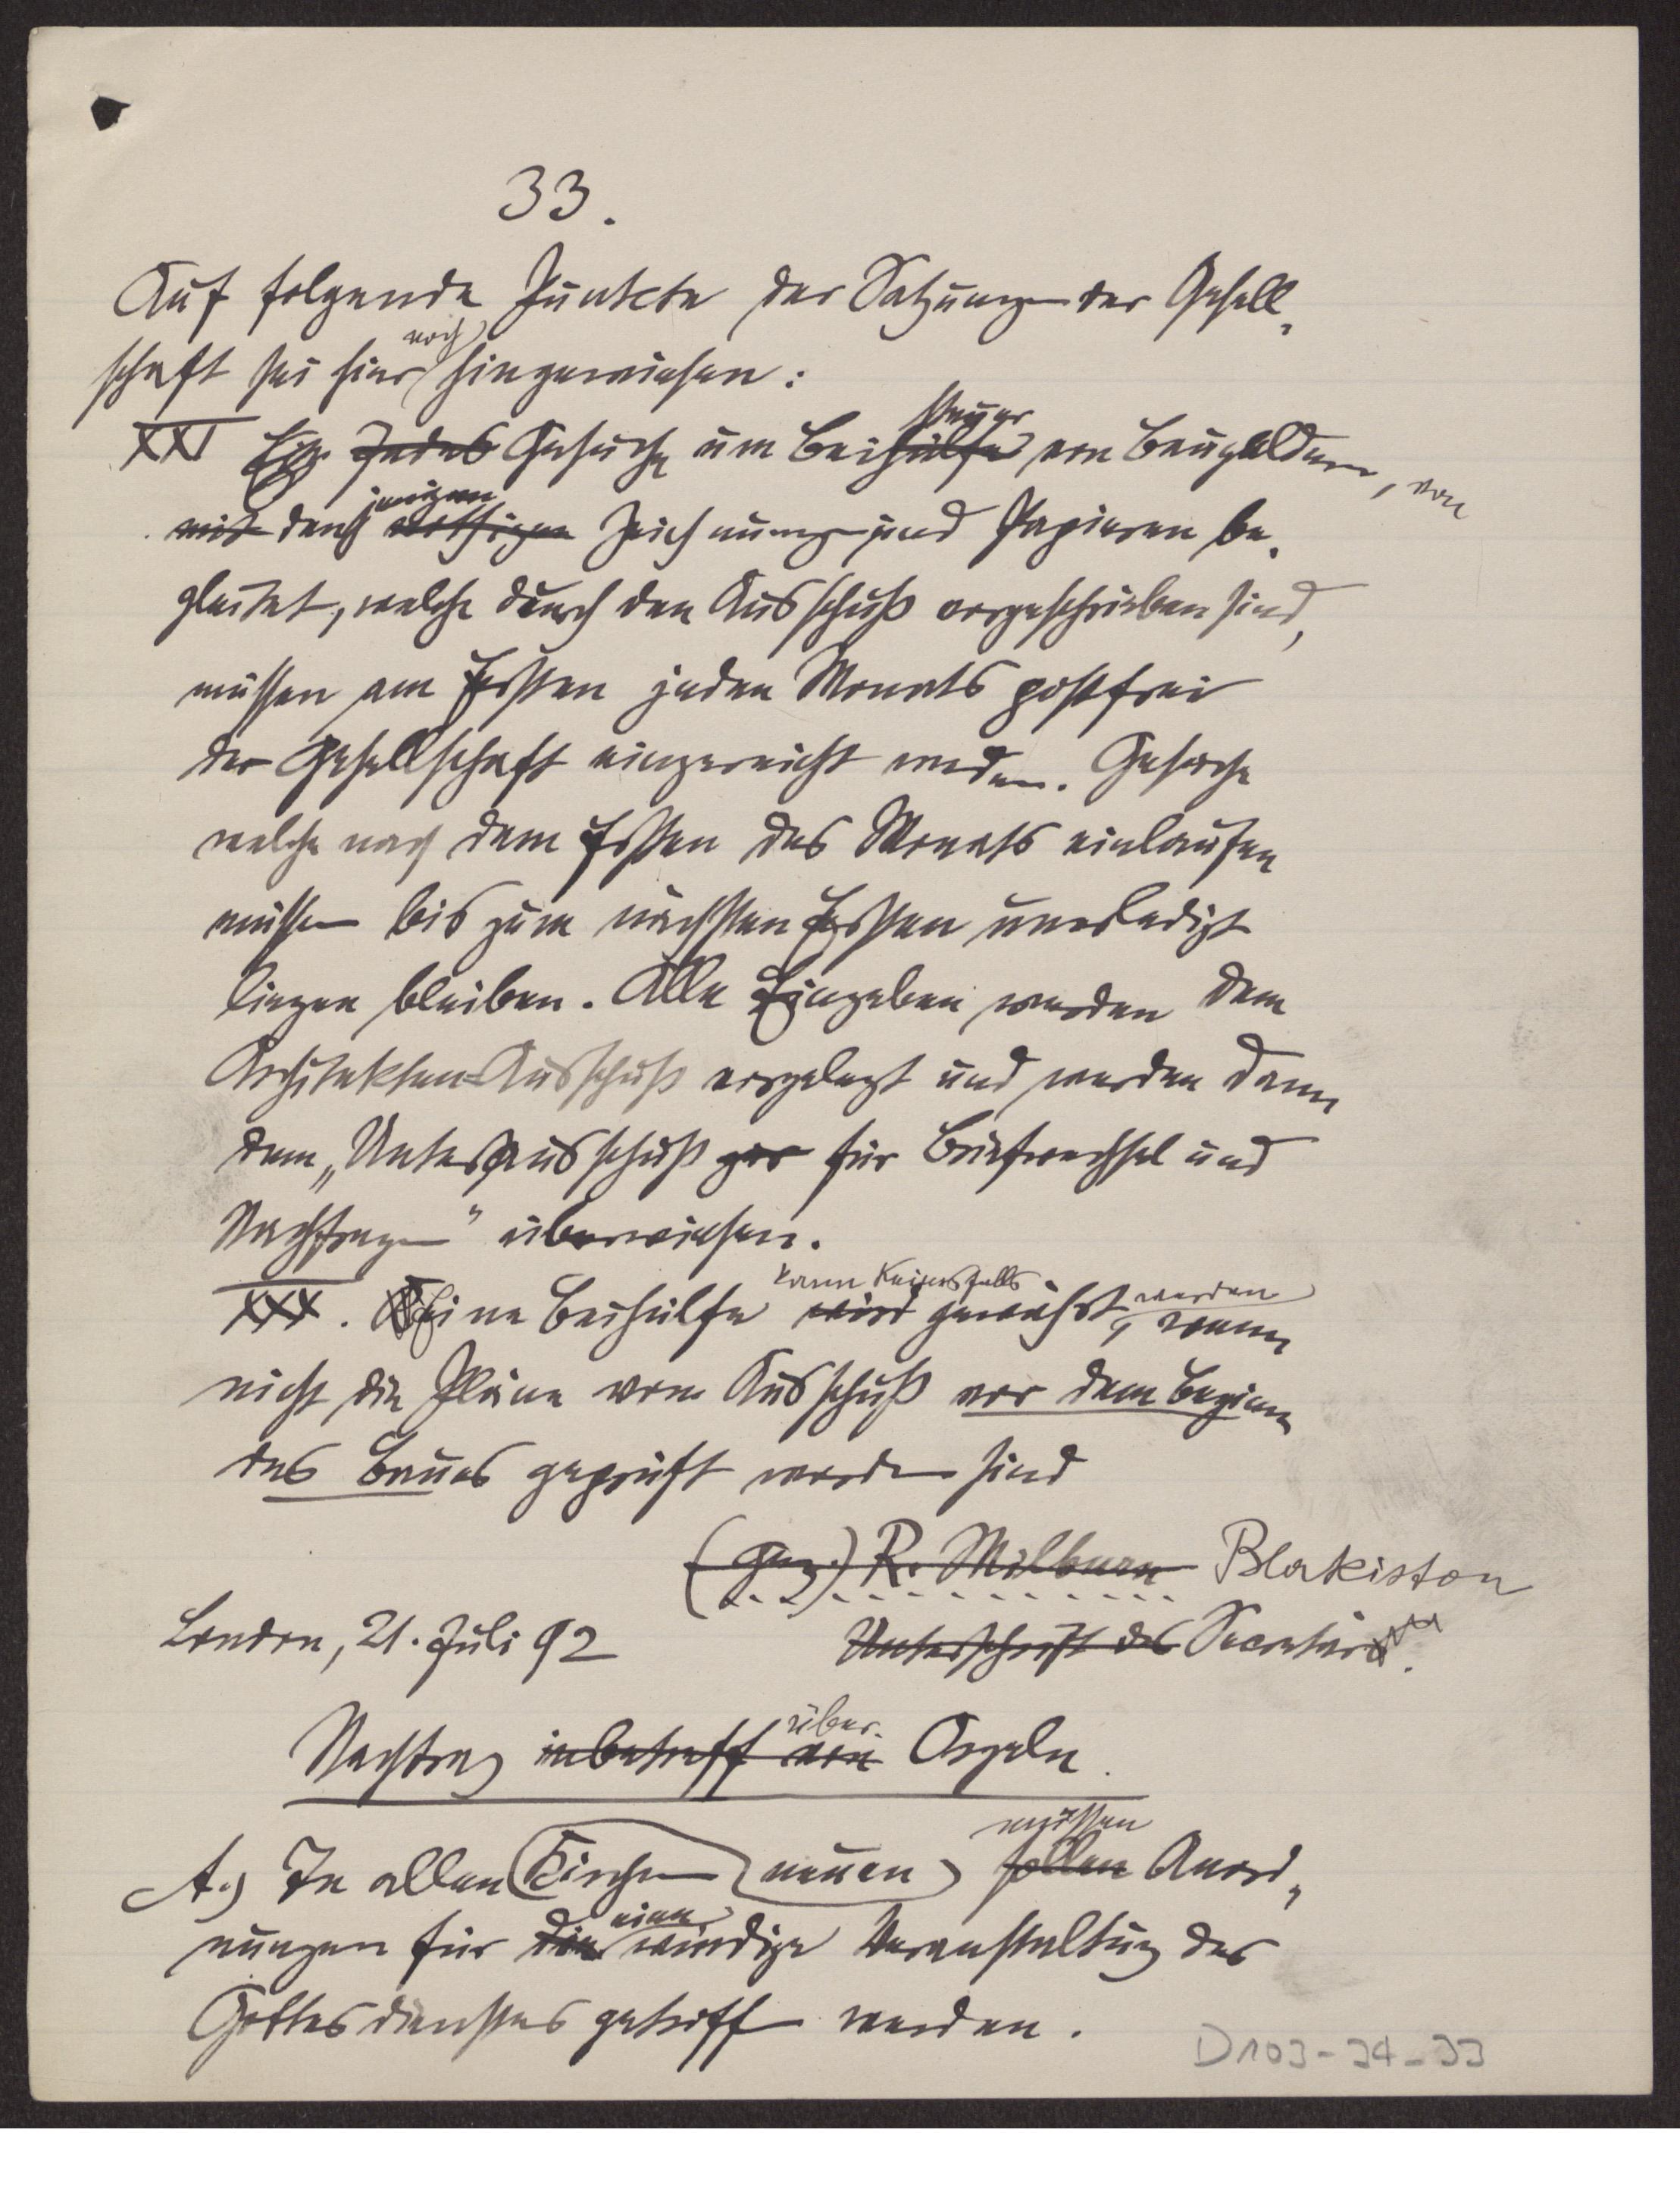 33.
Auf folgende Punkte der Satzungen der Gesell-
schaft sei hier noch hingewiesen:
XXI Jedes Gesuche um Beihülfe steuer von Baugeldern, von
mit den jenigen nöthigen Zeichnungen und Papieren be-
gleitet, welche durch den Ausschuß vorgeschrieben sind,
müssen am Ersten jeden Monats postfrei
der Gesellschaft eingereicht werden. Gesuche
welche nach dem Ersten des Monats einlaufen
müssen bis zum nächsten Ersten unerledigt
liegen bleiben. Alle Eingaben werden dem
Architekten-Ausschuß vorgelegt und werden dann
dem „Unterausschuß für Briefwechsel und
Nachfragen" überwiesen.
XXX. Eine Beihülfe wird kann keinesfalls gewährt werden, wenn
nicht die Pläne vom Ausschuß vor dem Beginn
des Baues geprüft worden sind
(gez.) R. Milburn Blakiston
London, 21. Juli 92
Unterschrift des Secretär
Nachtrag inbetreff von über Orgeln.
A.) In allen Kirchen neuen sollen müssen Anord-
nungen für die eine würdige Veranstaltung des
Gottesdienstes getroffen werden.
D103-34-33